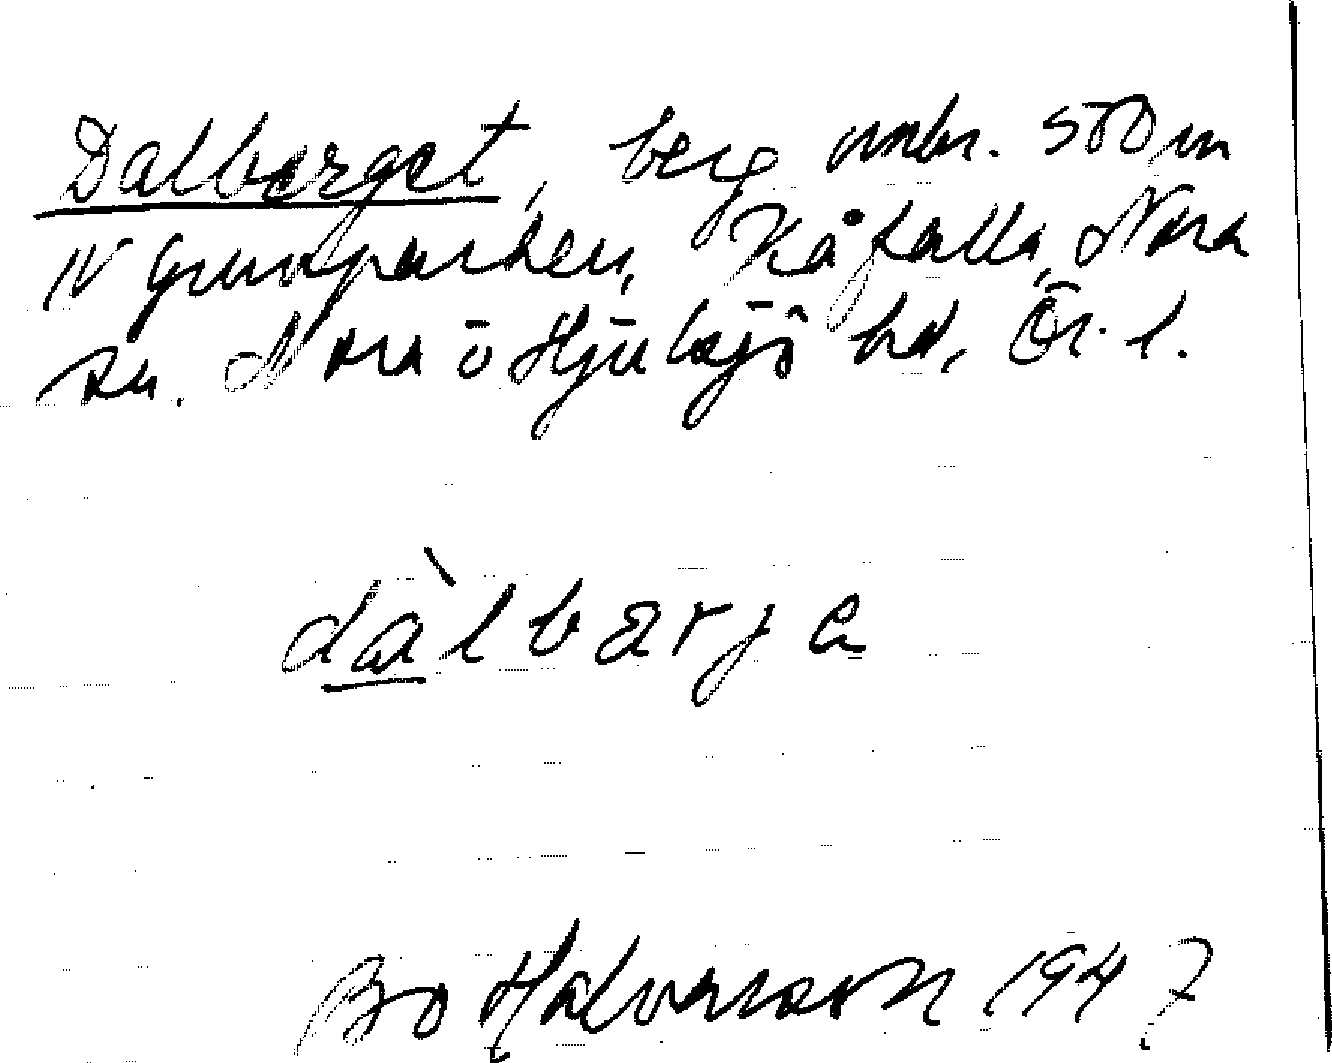 Dalberget, berg omkr. 500 m
N Gruvparken, Kåfalla, Nora
sn. Nora o Hjulsjö hd, Ör. l.
dàlbärje
Bo Halvarsson 1947